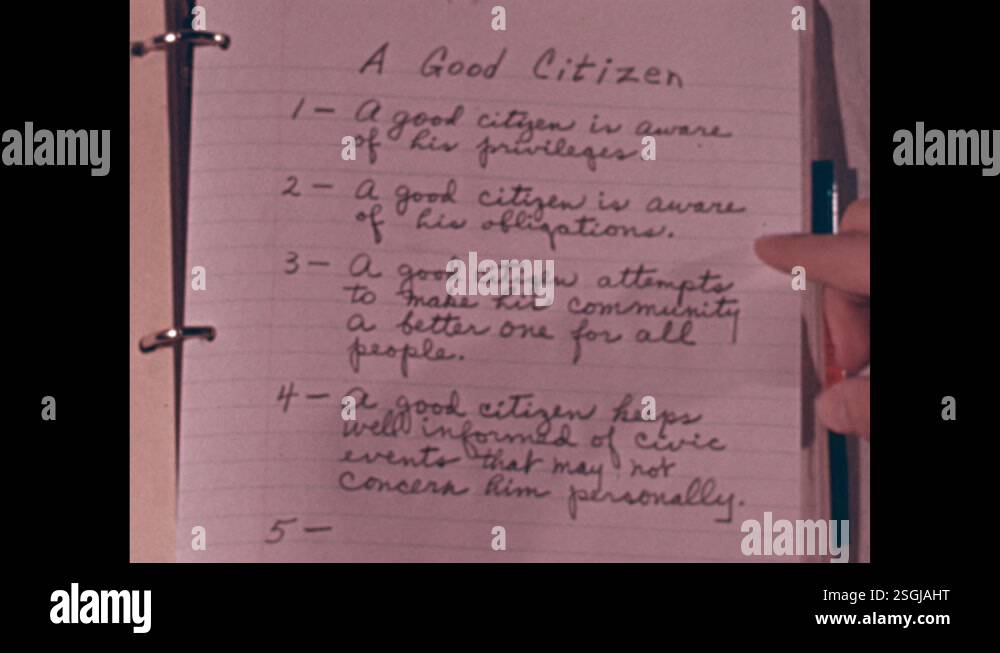 A Good Citizen
1 - A good citizen is aware
of his privileges
2 - A good citizen is aware
of his obligations.
3 - A good citizen attempts
to make his community
a better one for all
people.
4 - A good citizen keeps
well informed of civic
events that may not
concern him personally.
5 -
alamy
a
a
a
a
a
a
a
a
a
a
a
alamy
alamy
alamy
alamy
alamy
Image ID: 2SGJAHT
www.alamy.com